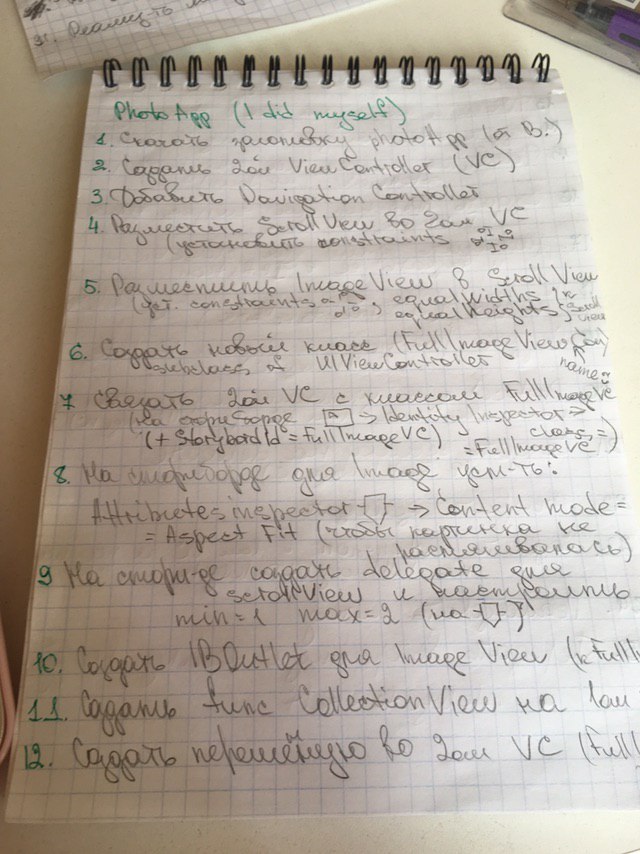 31.
PhotoApp (I did myself)
1. Скачать заготовку photoApp (от В.)
2. Создать 2ой ViewController (VC)
3. Добавить Navigation Controller
4. Разместить ScrollView во 2ом VC
(установить constraints
5. Разместить ImageView в Scroll View
(уст. constraints , equal Widths, к
equal Heights, Scroll
View
6. Создать новый класс (FullImageViewCon)
subclass of UIViewController
name
7 Связать 2ой VC с классом FullImageVC
(на сториборде → Identity Inspector →
(+ StorybordId = FullImageVC) class =
= FullImageVC )
8. На сториборде для Image уст-ть:
Attributes inspector → Content mode =
= Aspect Fit (чтобы картинка не
растягивалась)
9 На стори-де создать delegate для
scrollView и настроить
min = 1 max = 2 (на )
10. Создать IBOutlet для Image View (к Full
11. Создать func CollectionView на 1ом
12. Создать переменную во 2ом VC (Full